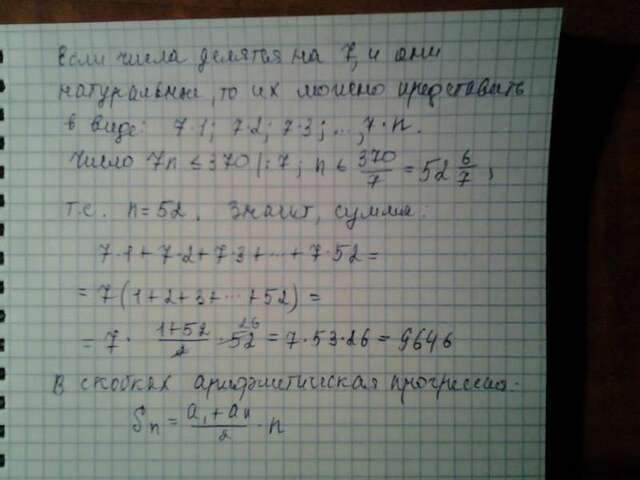 Если числа делятся на 7, и они
натуральные, то их можно представить
в виде: 7·1; 7·2; 7·3; ..., 7·n.
Число 7n ≤ 370 |:7; n ≤ 370/7 = 52 6/7,
т.е. n = 52. Значит, сумма:
7·1 + 7·2 + 7·3 + ... + 7·52 =
= 7(1+2+3+...+52) =
= 7 · (1+52)/2 · 52 26 = 7·53·26 = 9646
В скобках арифметическая прогрессия.
Sn = (a1 + an)/2 · n